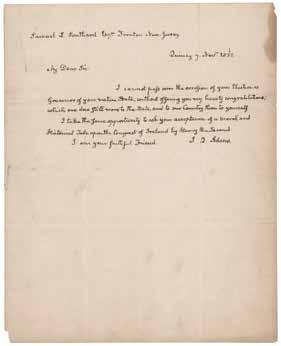 Samuel L. Southard Esqr. Trenton New Jersey
Quincy 7. Novr. 1832
My Dear Sir.
I cannot pass over the occasion of your Election as
Governor of your native State, without offering you my hearty congratulations,
which are due still more to the State, and to our Country than to yourself
I take the same opportunity to ask your acceptance of a moral and
Historical Tale upon the Conquest of Ireland by Henry the Second
I am your faithful Friend. J. Q. Adams.